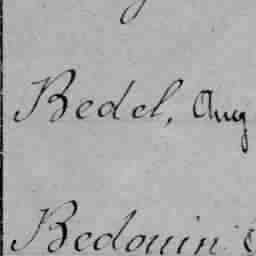 Bedel, Aug
Bedouin